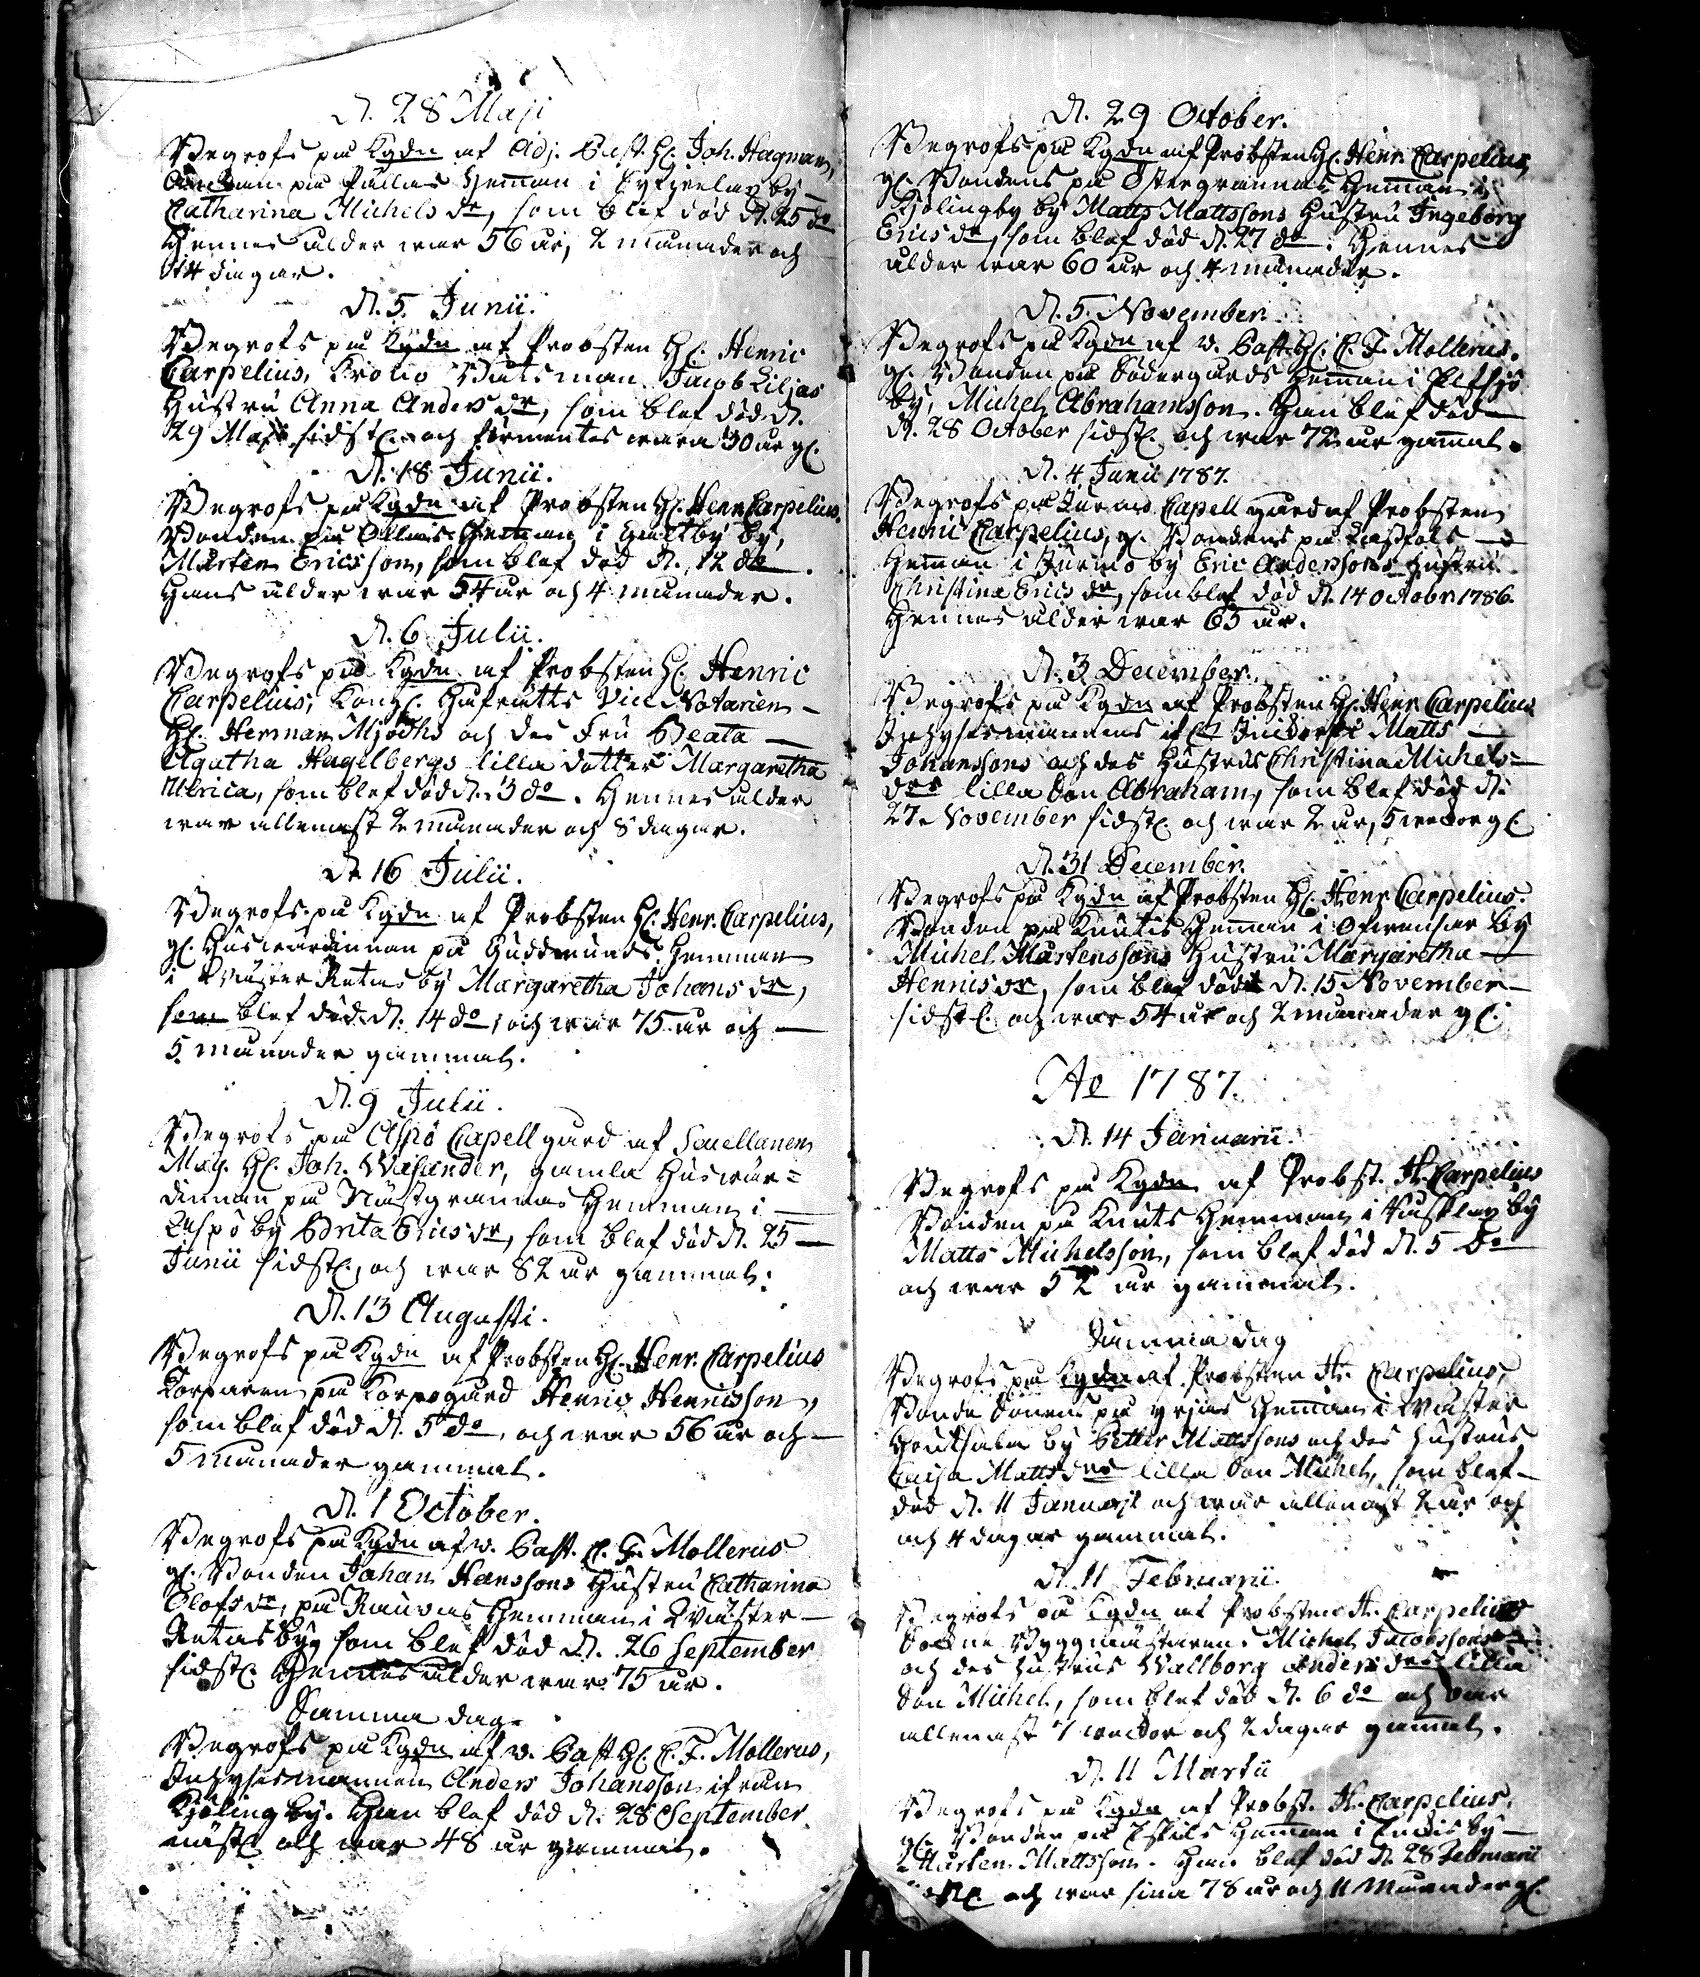 D. 28 Maji
Begrofs på Kgdn af Adj. Past. H. Joh. Hagman,
Enckan på Pållas Heman i by
Catharina Michels dr, som blef död d. 25 do
Hennes ålder war 56 år, 2 månader och
14 dagar.
D. 5. Junii.
Begrofs på Kgdn af Probsten H. Henric
Carpelius, Krono Båtsman Jacob Liljas
Hustru Anna Anders dr, som blef död d.
29 Maji sidstl. och förmentes wara 30 år gl.
D. 18 Junii.
Begrofs på Kgdn af Probsten H. Henr. Carpelius.
Bonden på Ollas Heman i by,
Mårten Ericsson, som blef död d. 12 do.
Hans ålder war 54 år och 4 månader.
D. 6 Julii.
Begrofs på Kgdn af Probsten H. Henric
Carpelius, Kongl. Hofrätts Vice Notarien
H. Herman Mjödhs och des Fru Beata
Agatha Hagelbergs lilla dotter Margaretha
Ulrica, som blef död d. 3 do. Hennes ålder
war allenast 2 månader och 8 dagar.
D. 16 Julii.
Begrofs på Kgdn af Probsten H. Henr. Carpelius,
gl. Huswärdinnan på Guddmunds Hemman
i Wäster Retais by Margaretha Johans dr,
som blef död d. 14 do, och war 75 år och
5 månader gammal.
D. 9 Julii.
Begrofs på Aspö Capell gård af Sacellanen
Mag. H. Joh. Wasander, gamla Huswär=
dinnan på Nästgrannas Hemman i
Aspö by Brita Erics dr, som blef död d. 25
Junii sidstl., och war 82 år gammal.
D. 13 Augusti.
Begrofs på Kgdn af Probsten H. Henr. Carpelius
Torparen på Korpogård Henric Henricsson,
som blef död d. 5 do, och war 56 år och
5 månader gammal.
D. 1 October.
Begrofs på Kgdn af v. Past. C. F. Mollerus
gl. Bonden Johan Hanssons Hustru Catharina
Olofs dr, på Rauvas Hemman i Wäster
Retais by, som blef död d. 26 September
sidstl. Hennes ålder war 75 år.
Samma dag
Begrofs på Kgdn af v. Past H. C. F. Mollerus,
Inhysesmannen Anders Johansson ifrån
Kjöling by. Han blef död d. 28 September
näst. och war 48 år gammal.
D. 29 October.
Begrofs på Kgdn af Probsten H. Henr. Carpelius,
gl. Bondens på Östergrannas Heman i
Kjölingby by Matts Mattssons Hustru Ingeborg
Erics dr, som blef död d. 27 do. Hennes
ålder war 60 år och 4 månader.
D. 5. November.
Begrofs på Kgdn af v. Past. H. C. F. Mollerus.
gl. Bonden på Södergårds Heman i
by, Michel Abrahamsson. Han blef död
d. 28 October sidstl. och war 72 år gamal.
D. 4 Junii 1787.
Begrofs på Jurmo Capell gård af Probsten
Henric Carpelius, gl. Bondens på
Heman i Jurmo by Eric Anderssons Hustru
Christina Erics dr, som blef död d. 14 octobr 1786.
Hennes ålder war 65 år.
D. 3 December.
Begrofs på Kgdn af Probsten H. Henr. Carpelius
Inhysesmannens if Matts
Johanssons och des Hustrus Christina Michels=
drs lilla Son Abraham, som blef död d.
27. November sidstl. och war 2 år, 5 weckor gl.
D. 31 December.
Begrofs på Kgdn af Probsten H. Henr. Carpelius.
Bonden på Knutis Heman i by
Michel Mårtenssons Hustru Margaretha
Henrics dr, som blef död d. 15 November
sidstl. och war 54 år och 2 månader gl.
Ao 1787.
D. 14 Januarii.
Begrofs på Kgdn af Probst. H. Carpelius
Bonden på Knuts Hemman i by
Matts Michelsson, som blef död d. 5 Do
och war 52 år gammal.
Samma dag
Begrofs på Kgdn af Probsten H. Carpelius,
Bonde Sonens på Heman i Wäster
by Petter Mattssons och des Hustrus
Caisa Matts drs lilla Son Michel, som blef
död d. 11 Januarii och war allenast 2 år och
och 4 dagar gammal.
D. 11 Februarii.
Begrofs på Kgdn af Probsten H. Carpelius
Sockne Byggmästaren Michel Jacobssons
och des hustrus Wallborg Anders drs lilla
Son Michel, som blef död d. 6 do och war
allenast 7 weckor och 2 dagar gamal.
D. 11 Martii
Begrofs på Kgdn af Probst. H. Carpelius,
gl. Bonden på Eskils Heman i by
Mårten Mattsson. Han blef död d. 28 Februarii
sidstl. och war sina 78 år och 11 Månader gl.